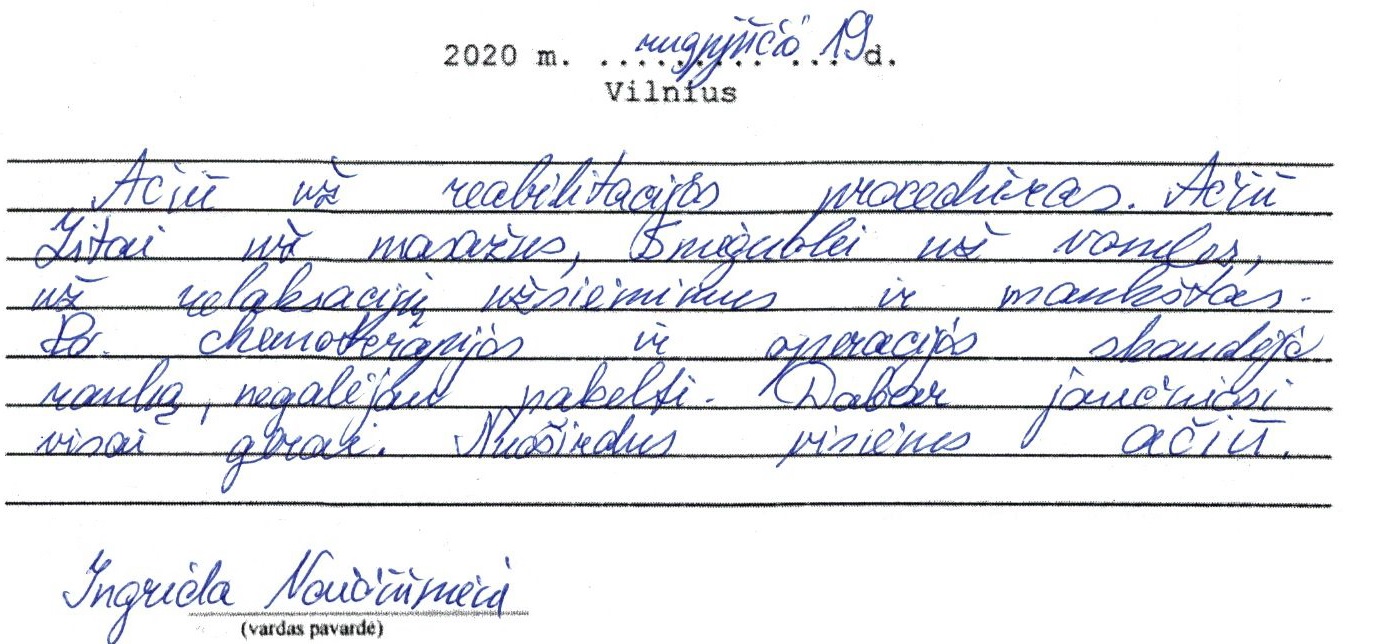 2020 m. rugpjūčio 19 d.
Vilnius
Ačiū už reabilitacijos procedūras. Ačiū
Zitai už masažus, Smiguolei už voneles,
už relaksacijų užsiėmimus ir mankštas.
Po chemoterapijos ir operacijos skaudėjo
ranką, negalėjau pakelti. Dabar jaučiuosi
visai gerai. Nuoširdus visiems ačiū.
Ingrida
(vardas pavardė)